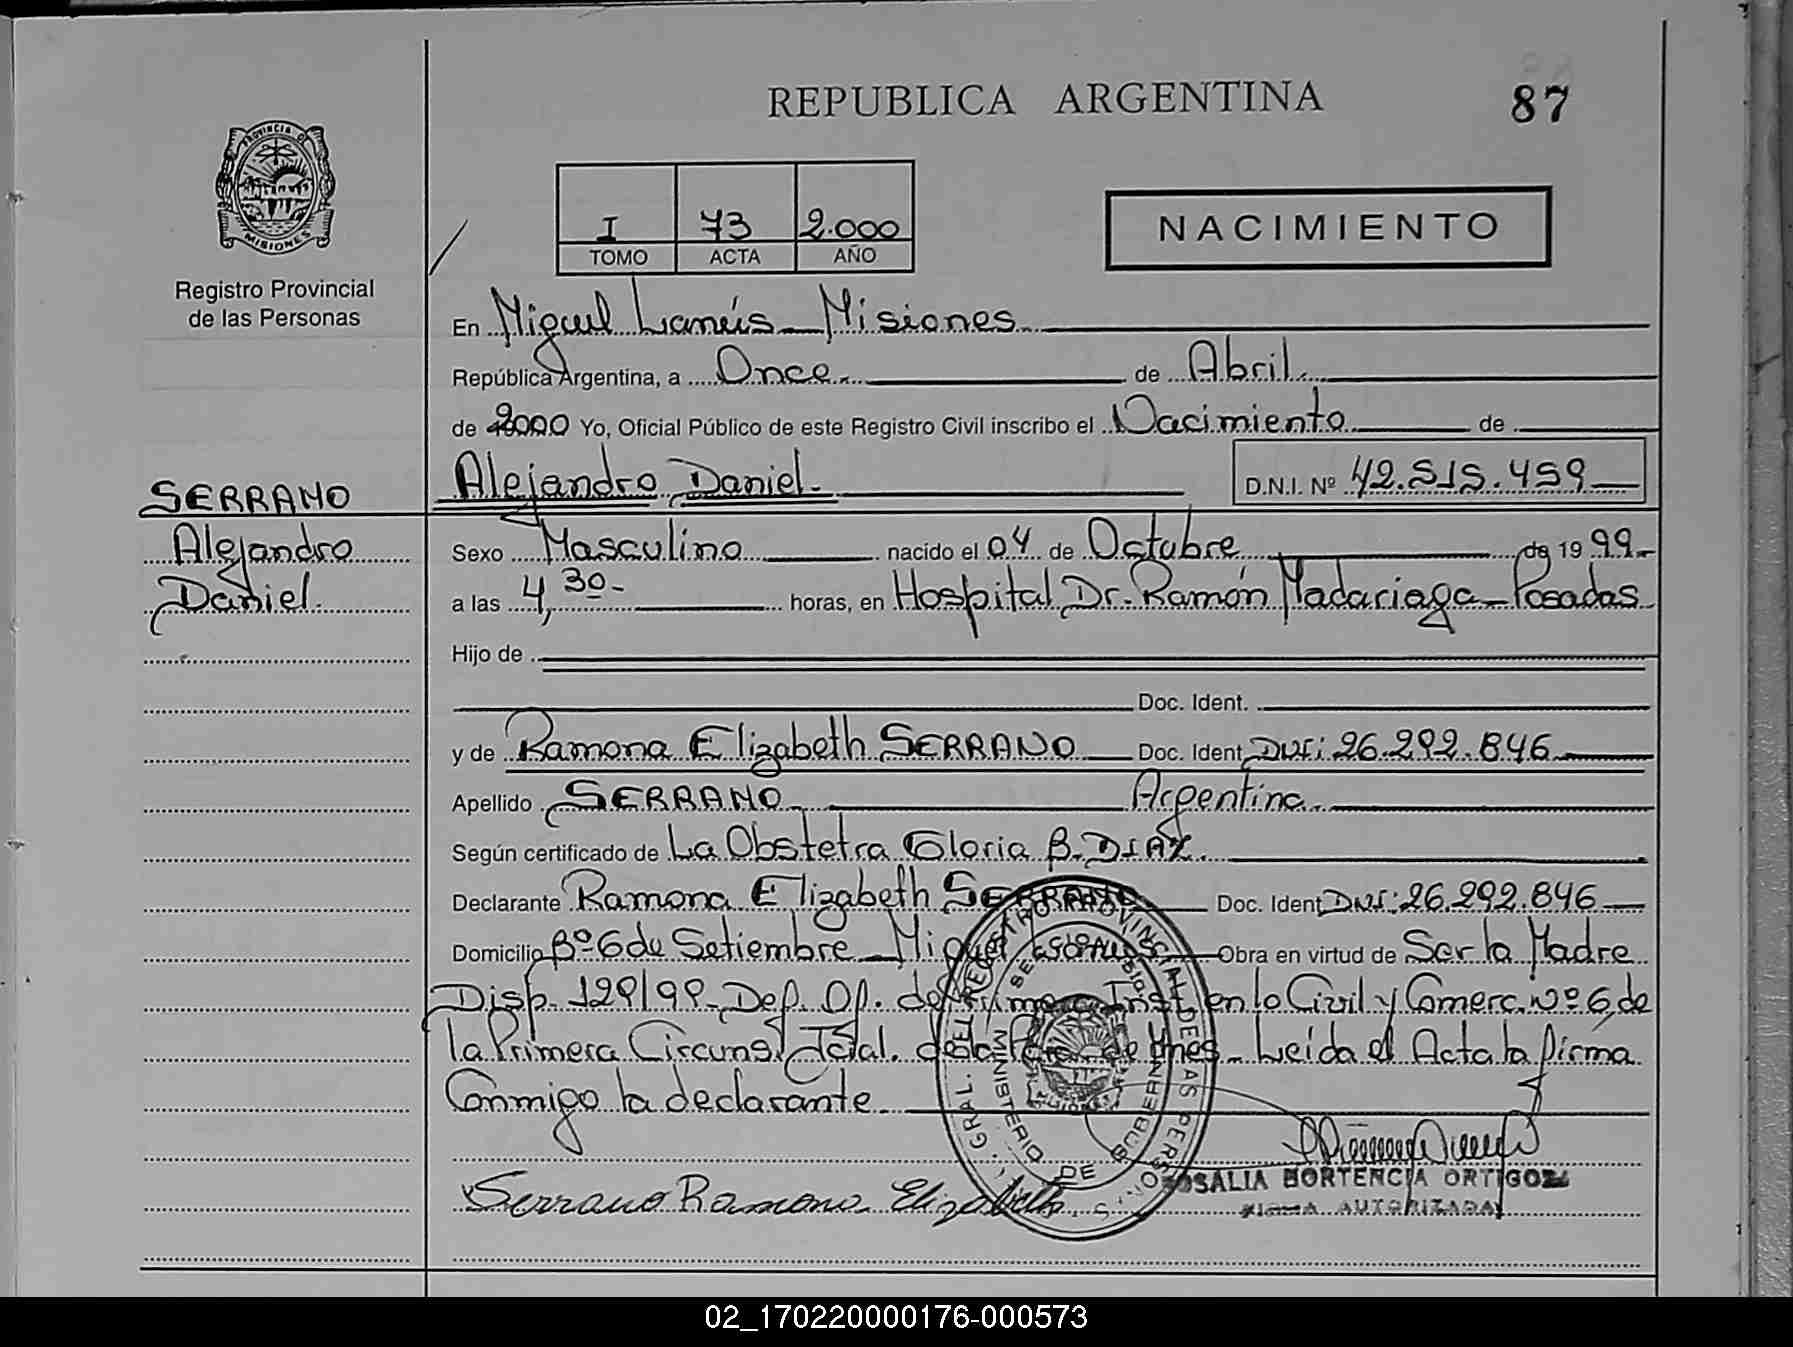 REPUBLICA ARGENTINA
87
PROVINCIA DE
MISIONES
Registro Provincial
de las Personas
I 73 2.000
TOMO ACTA AÑO
NACIMIENTO
En Miguel Lanús - Misiones
República Argentina, a Once. de Abril.
de 2000 Yo, Oficial Público de este Registro Civil inscribo el Nacimiento de
SERRANO
Alejandro
Daniel.
Alejandro Daniel.
D.N.I. Nº 42.515.459
Sexo Masculino nacido el 04 de Octubre de 1999-
a las 4,30- horas, en Hospital Dr. Ramón Madariaga - Posadas
Hijo de
Doc. Ident.
y de Ramona Elizabeth SERRANO Doc. Ident. DNI: 26.292.846
Apellido SERRANO Argentina.
Según certificado de La Obstetra Gloria B. DIAZ.
Declarante Ramona Elizabeth SERRANO Doc. Ident. DNI: 26.292.846
Domicilio Bº 6 de Setiembre - Miguel Lanús Obra en virtud de Ser la Madre
Disp. 129/99 - Def. Of. de Primera Inst. en lo Civil y Comerc. Nº 6 de
la Primera Circuns. Jdial. de la Pcia. de Mnes. - Leída el Acta la firma
Conmigo la declarante
Serrano Ramona Elizabeth
ROSALIA HORTENCIA ORTIGOZA
FIRMA AUTORIZADA
GRAL. DEL REGISTRO PROVINCIAL DE LAS PERSONAS
MINISTERIO DE GOBIERNO
02_170220000176-000573